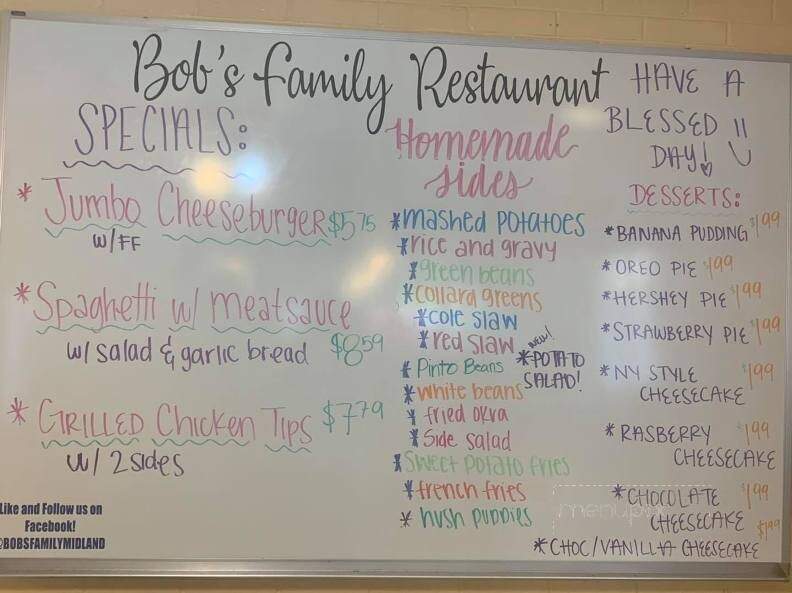 Bob's Family Restaurant
HAVE A
BLESSED
DAY!
SPECIALS:
* Jumbo Cheeseburger $5.75
w/FF
* Spaghetti w/ meatsauce
w/ salad & garlic bread $8.59
* GRILLED Chicken Tips $7.79
w/ 2 sides
Like and Follow us on
Facebook!
@BOBSFAMILYMIDLAND
Homemade
sides
*mashed potatoes
*rice and gravy
*green beans
*collard greens
*cole slaw
*red slaw
NEW!
*POTATO
SALAD!
* Pinto Beans
*white beans
* fried okra
* Side salad
*Sweet potato fries
*french fries
* hush puppies
DESSERTS:
*BANANA PUDDING $1.99
*OREO PIE $1.99
*HERSHEY PIE $1.99
*STRAWBERRY PIE $1.99
*NY STYLE $1.99
CHEESECAKE
*RASBERRY $1.99
CHEESECAKE
*CHOCOLATE $1.99
CHEESECAKE
*CHOC/VANILLA CHEESECAKE $1.99
menupix